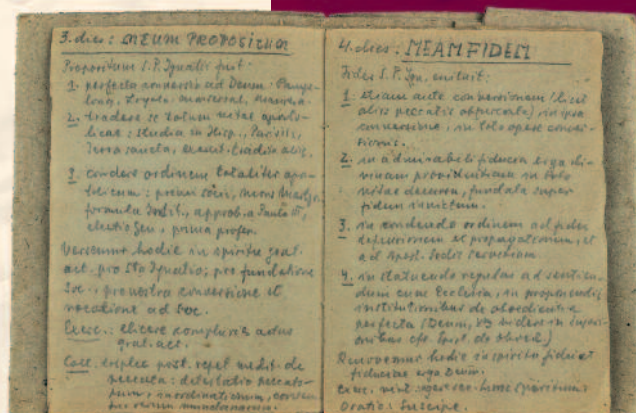 3. dies: MEUM PROPOSITUM
Propositum S.P. Ignatii fuit:
1. perfecta conversio ad Deum: Pampe-
lona, Loyola, Montserrat, Manresa.
2. tradere se totum vitae aposto-
licae: studia in Hisp., Parisiis,
Terra sancta, exercit. tradita aliis.
3. condere ordinem totaliter apo-
stolicum: primi socii, Mons Martyr.
formula Instit., approb. a Paulo III,
electio Gen., prima profes.
Versemur hodie in spiritu grat.
act. pro Sto Ignatio; pro fundatione
Soc., pro nostra conversione et
vocatione ad Soc.
Exerc.: elicere complures actus
grat. act.
Coll. triplex post. repet. medit. de
peccatis: detestatio peccato-
rum, inordinationum,
rerum mundanarum.
4. dies: MEAM FIDEM
Fides S.P. Ign. enituit:
1. etiam ante conversionem (licet
aliis peccatis obfuscata), in ipsa
conversione, in toto opere conver-
sionis.
2. in admirabili fiducia erga di-
vinam providentiam in toto
vitae decursu, fundata super
fidem invictam.
3. in condendo ordinem ad fidei
defensionem et propagationem, et
ad Apost. Sedis servitium.
4. in statuendo regulas ad sentien-
dum cum Ecclesia, in proponendis
institutionibus de obedientia
perfecta (Deum, videre in superi-
oribus cfr. Epist. de obed.)
Renovemur hodie in spiritu fidei et
fiduciae erga Deum.
Oratio: Suscipe.